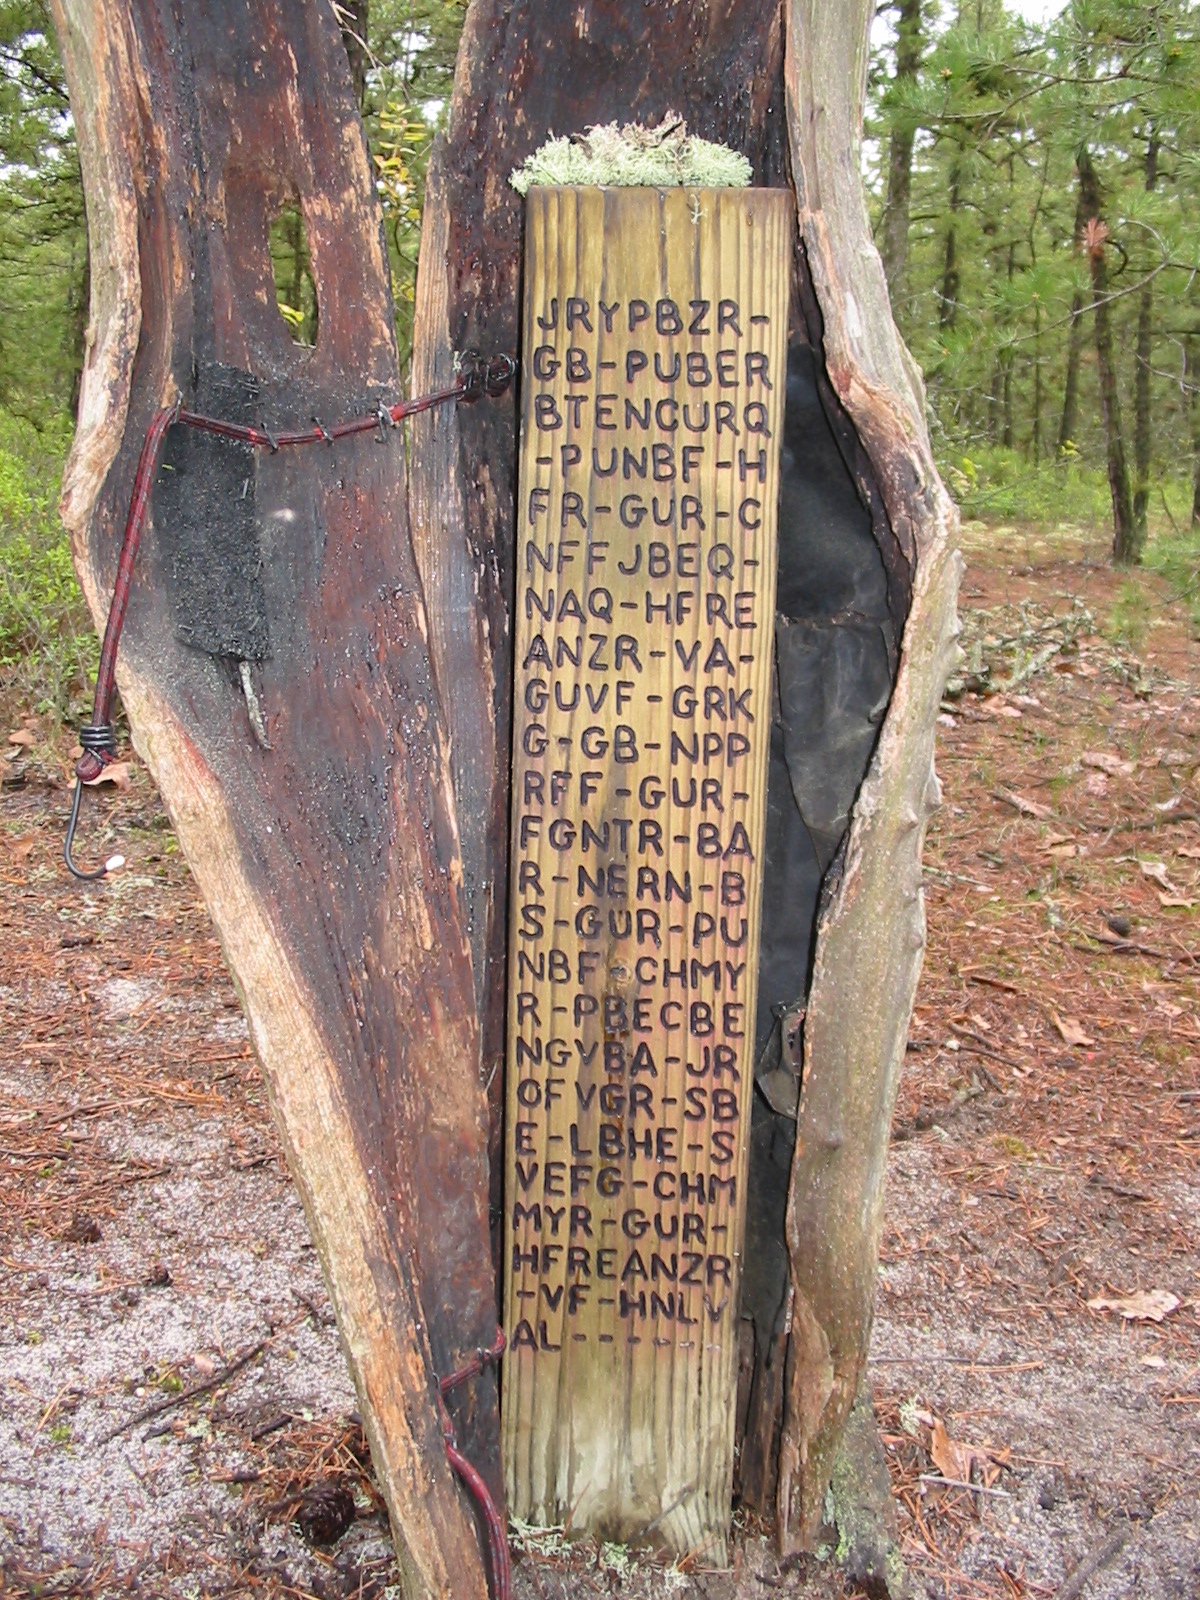 JRYPBZR-
GB-PUBER
BTENCURQ
-PUNBF-H
FR-GUR-C
NFFJBEQ-
NAQ-HFRE
ANZR-VA-
GUVF-GRK
G-GB-NPP
RFF-GUR-
FGNTR-BA
R-NERN-B
S-GUR-PU
NBF-CHMY
R-PBECBE
NGVBA-JR
OFVGR-SB
E-LBHE-S
VEFG-CHM
MYR-GUR-
HFREANZR
-VF-HNLV
AL------